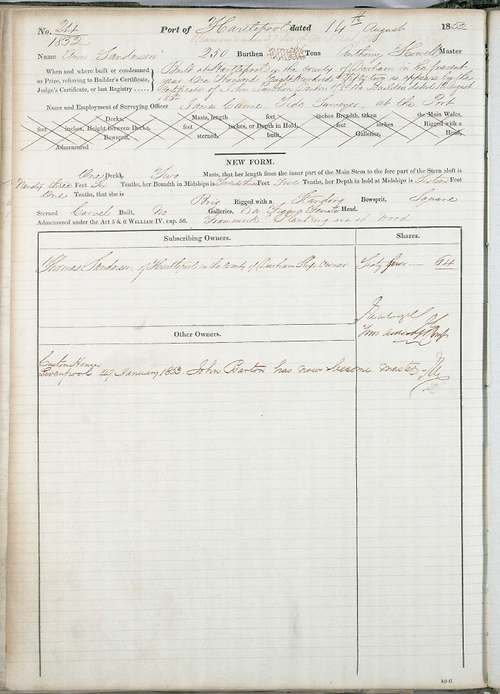 No. 24 Port of Hartlepool dated 14th August 1852
1852
Name Sanderson 250 Burthen Tons Master
When and where built or condemned as Prize, referring to Builder's Certificate, Judge's Certificate, or last Registry
Built at Hartlepool in the County of Durham in the present
year One thousand Eight hundred & Fifty two as appears by the
Certificate of John the Builder dated August
Name and Employment of Surveying Officer James Tide Surveyor at the Port
Decks, Masts, length feet inches Breadth, taken the Main Wales,
feet inches, Height Between Decks, feet inches, or Depth in Hold, feet inches Rigged with a
Bowsprit, sterned, built, Galleries, Head,
Admeasured
NEW FORM.
One Deck, Two Masts, that her length from the inner part of the Main Stem to the fore part of the Stern aloft is
Ninety three Feet Six Tenths, her Breadth in Midships is Feet Two Tenths, her Depth in hold at Midships is Feet
One Tenths, that she is Brig Rigged with a Standing Bowsprit, Square
Sterned Carvel Built, No Galleries, Head.
Admeasured under the Act 5 & 6 WILLIAM IV. cap. 56. Framework & Planking is of Wood
Subscribing Owners. Shares.
Thomas Sanderson of Hartlepool in the County of Durham Ship Owner Sixty four 64
Other Owners.
Custom House
Liverpool 4 January 1853 John Barton has now become master